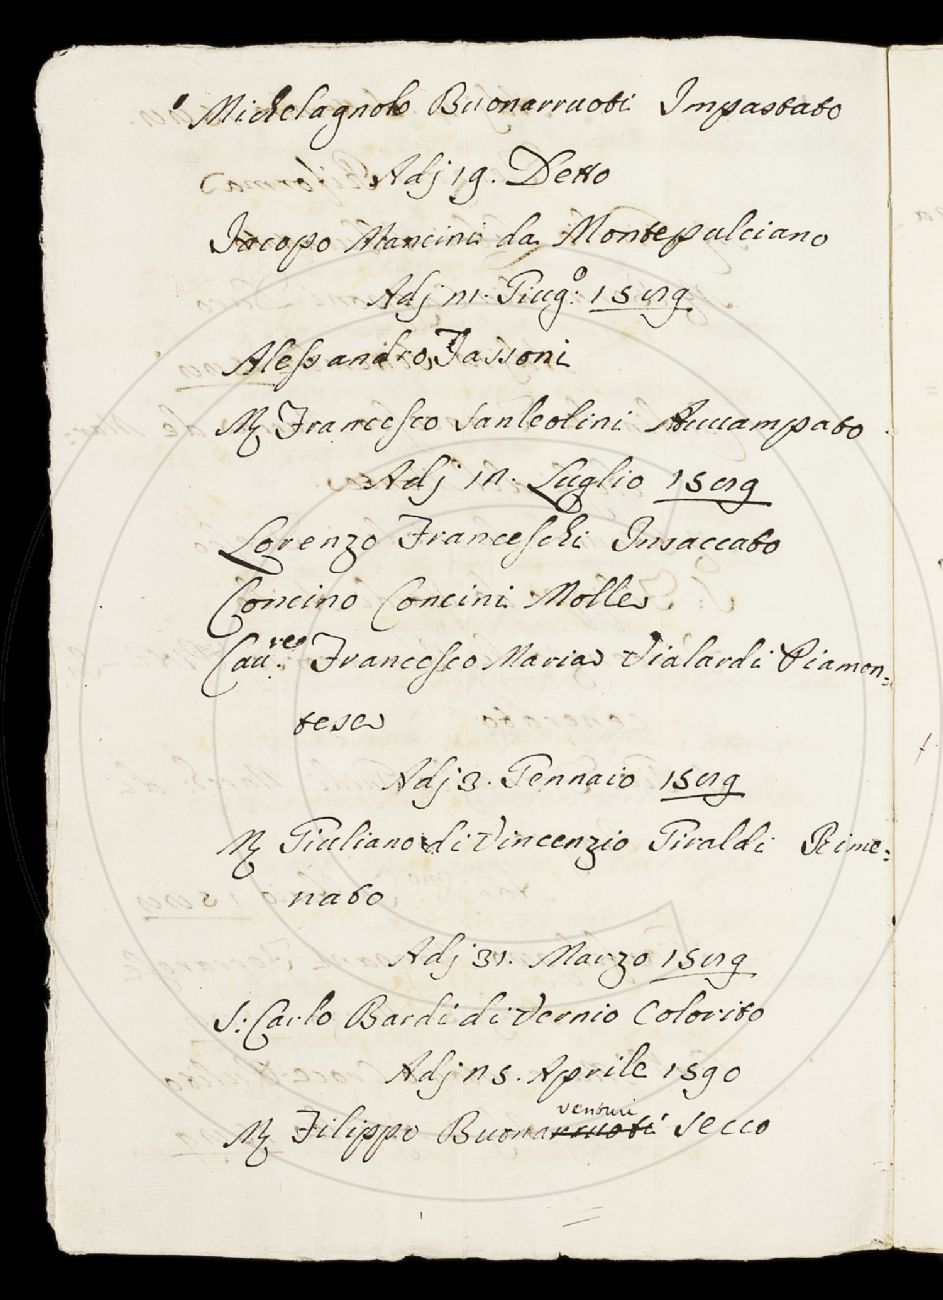 Michelagnolo Buonarruoti Impastato
Adj 19. Detto
Jacopo Mancini da Montepulciano
Adj 11. Giug.o 1589
Alessandro Tassoni
M Francesco Sanleolini Avvampato
Adj 12. Luglio 1589
Lorenzo Franceschi Insaccato
Concino Concini Molle
Cau.re Francesco Maria Vialardi Piamon=
tese
Adj 3. Gennaio 1589
M Giuliano di Vincenzio Giraldi Rime=
nato
Adj 31. Marzo 1589
S: Carlo Bardi di Vernio Colorito
Adj 25. Aprile 1590
venturi
M Filippo Buonarruoti Secco